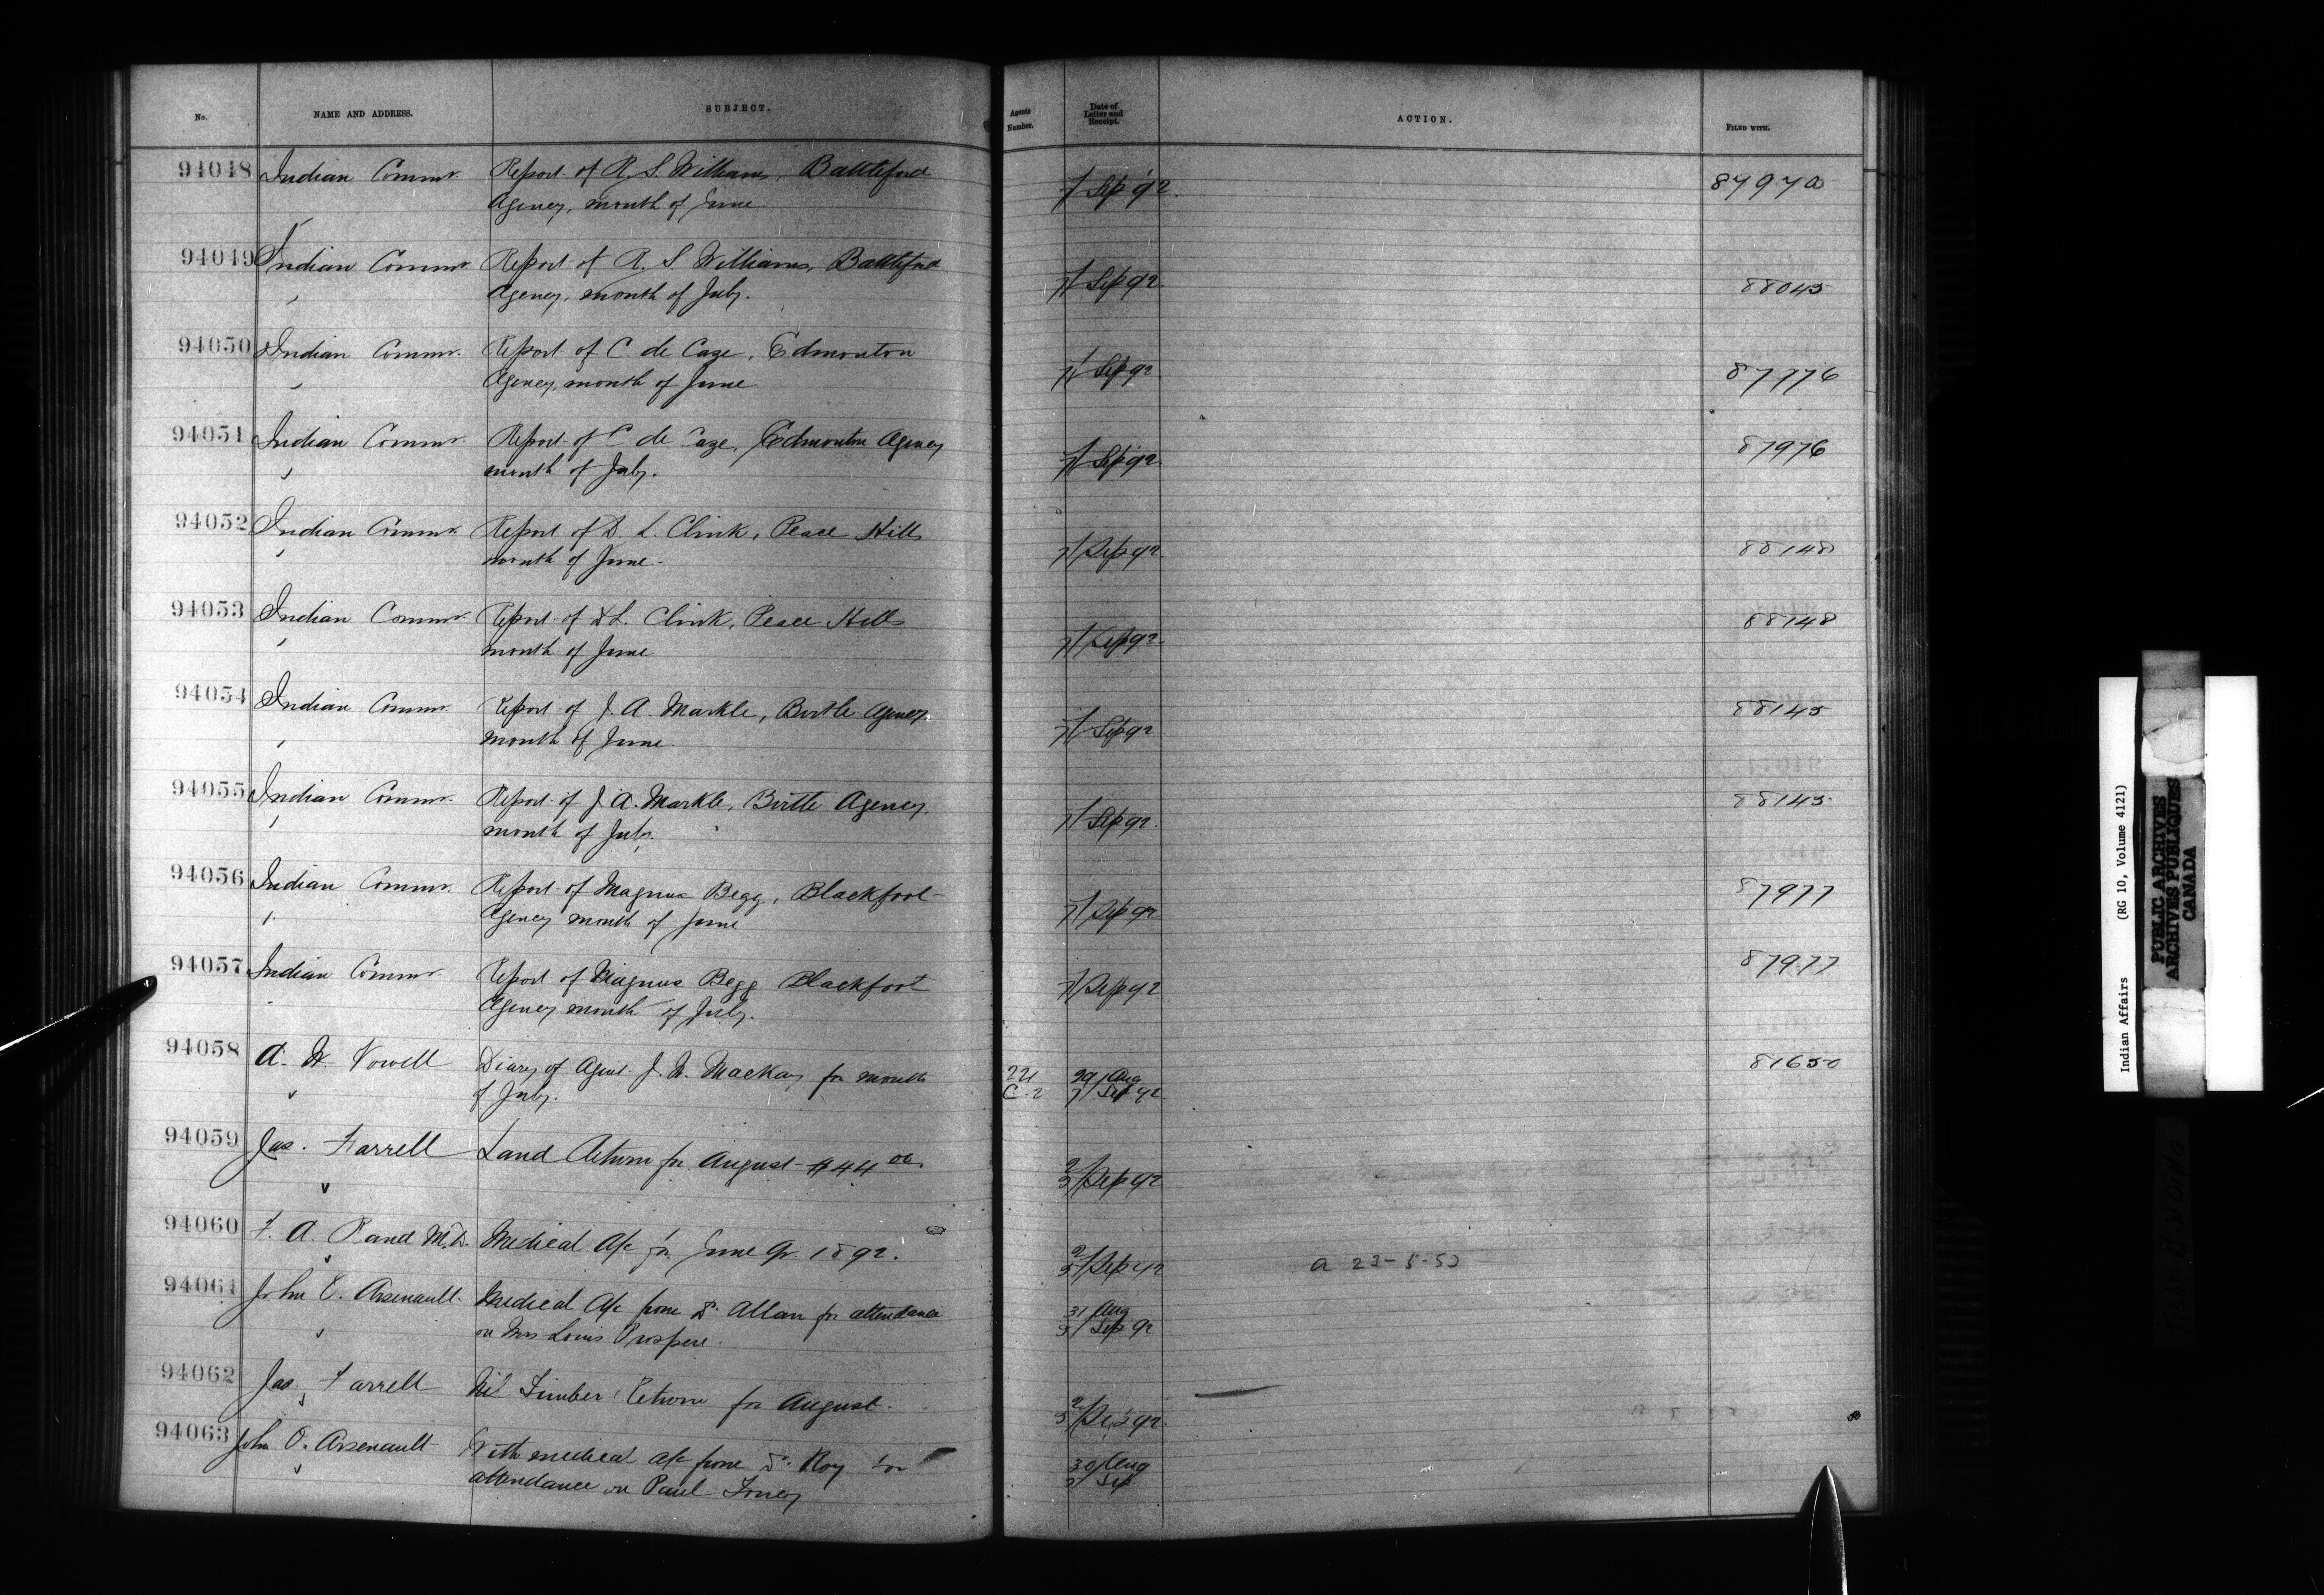 No. NAME AND ADDRESS. SUBJECT. Agents Number. Date of Letter and Receipt. ACTION. FILED WITH.
94048 Indian Commr. Report of R. S. Williams, Battleford 7/ Sep 92
Agency, month of June
94049 Indian Commr. Report of R. S. Williams, Battleford 7/ Sep 92 88045
Agency, month of July.
94050 Indian Commr. Report of C de Caze, Edmonton 7/ Sep 92 87976
Agency, month of June.
94051 Indian Commr. Report of C de Caze, Edmonton Agency 7/ Sep 92 87976
month of July.
94052 Indian Commr. Report of D. L. Clink, Peace Hills 7/ Sep 92 88148
month of June.
94053 Indian Commr. Report of D L. Clink, Peace Hills 7/ Sep 92 88148
month of June
94054 Indian Commr. Report of J. A. Markle, Birtle Agency. 7/ Sep 92 88145
month of June.
94055 Indian Commr. Report of J. A. Markle, Birtle Agency, 7/ Sep 92. 88145
month of July.
94056 Indian Commr. Report of Magnus Begg, Blackfoot 7/ Sep 92 87977
Agency month of June
94057 Indian Commr Report of Magnus Begg Blackfoot 7/ Sep 92 87977
Agency month of July.
94058 A. W. Vowell Diary of Agent J. W. Mackay for month 29/ Aug 81650
of July. C. 2 7/ Sep 92
94059 Jas. Farrell Land Return for August - $44 00 2/
5/ Sep 92
94060 F. A. Rand M.D. Medical A/c for June Qr. 1892. 2/
5/ Sep 92
94061 John O. Arsenault Medical A/c from Dr. Allan for attendance 31 Aug
on Mrs Louis Prospere. 5/ Sep 92
94062 Jas. Farrell Nil Timber Return for August. 2/
5/ Sep 92.
94063 John O. Arsenault With medical a/c from Dr. Roy for 30/ Aug
attendance on Paul 5/ Sep
Indian Affairs (RG 10, Volume 4121)
PUBLIC ARCHIVES
ARCHIVES PUBLIQUES
CANADA